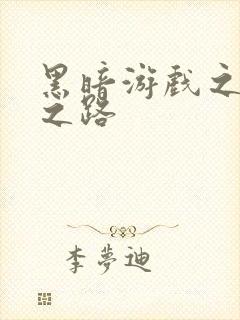 黑暗游戏之
之路
李夢迪